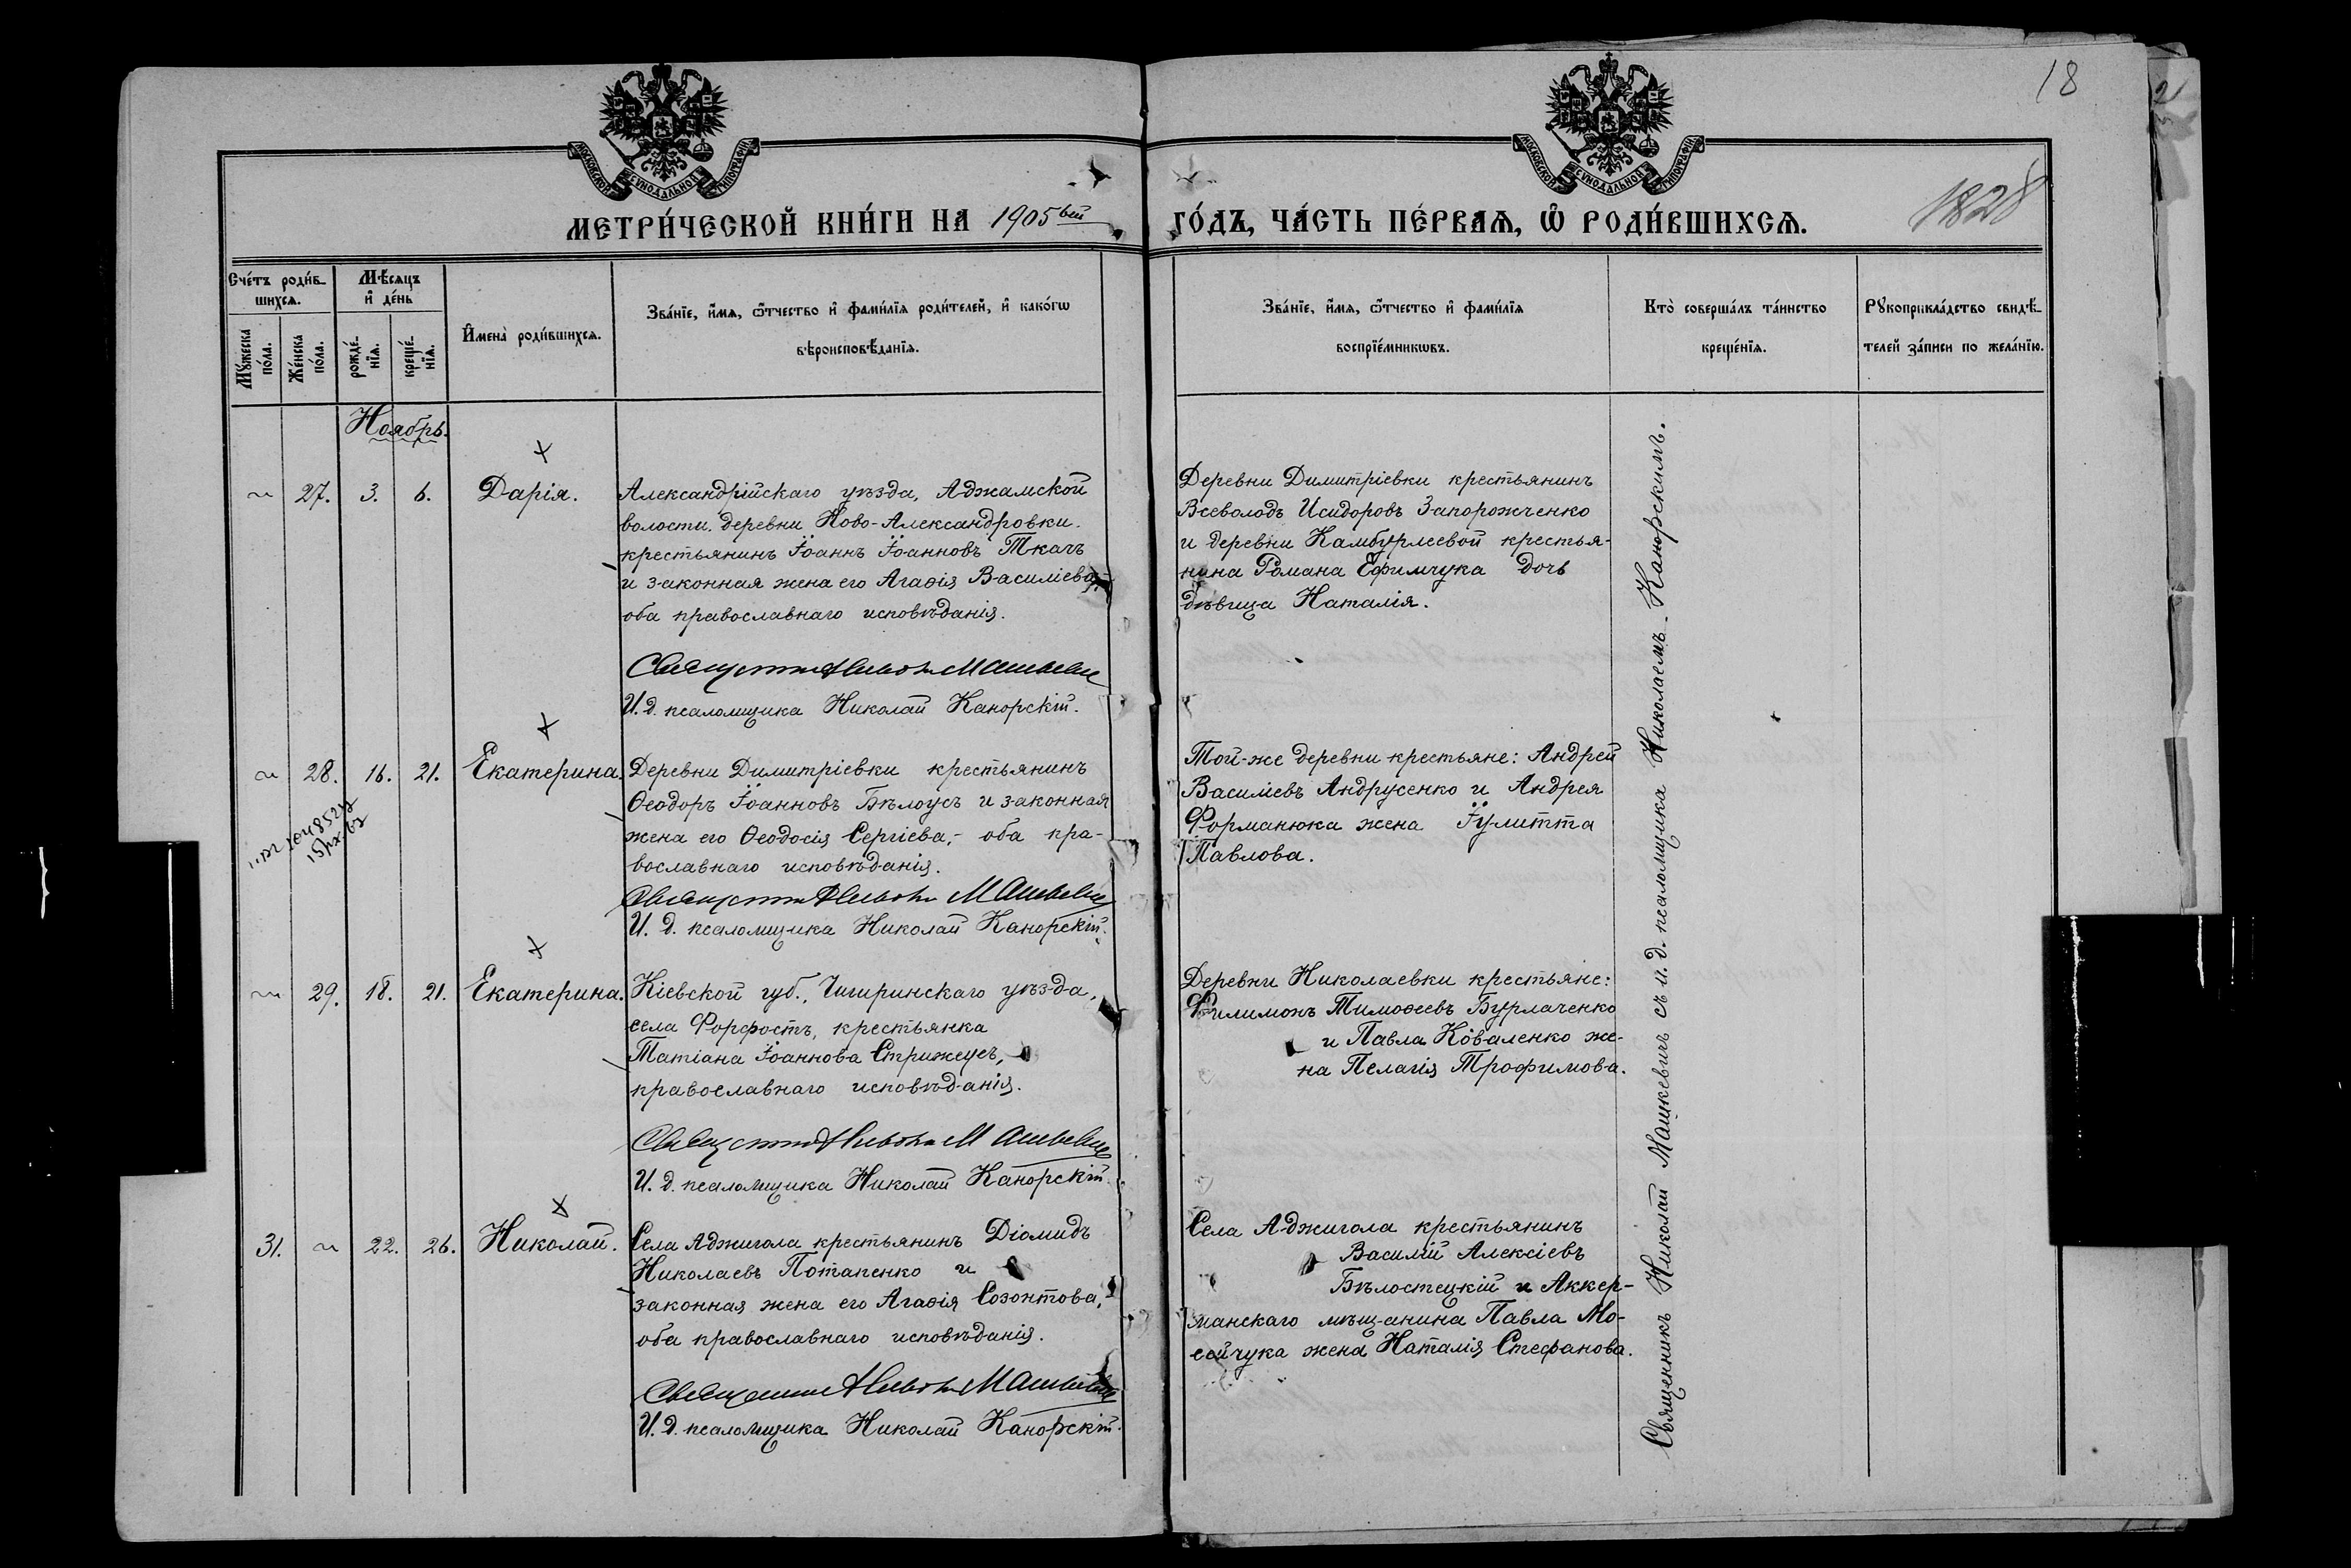 18
1828
МОСКОВСКОЙ СѴНОДАЛЬНОЙ ТИПОГРАФІИ
МОСКОВСКОЙ СѴНОДАЛЬНОЙ ТИПОГРАФІИ
МЕТРИ́ЧЕСКОЙ КНИ́ГИ НА 1905ый
ГО́ДЪ, ЧА́СТЬ ПЕ́РВАѦ, Ѽ РОДИ́ВШИХСѦ.
Сче́тъ роди́в-
шихсѧ.
Мѣ́сяцъ
и҆ де́нь
Мꙋ́жеска
по́ла.
Же́нска
по́ла.
рожде́-
нїѧ.
креще́-
нїѧ.
И҆мена̀ роди́вшихсѧ.
Зва́нїе, и҆́мѧ, ѻ҆́тчество и҆ фами́лїѧ роди́телей, и҆ како́гѡ
вѣроисповѣ́данїѧ.
Зва́нїе, и҆́мѧ, ѻ҆́тчество и҆ фами́лїѧ
воспрїе́мникѡвъ.
Кто̀ соверша́лъ та́инство
креще́нїѧ.
Рꙋкоприкла́дство свидѣ́-
телей за́писи по жела́нїю.
Ноябрь.
27. 3. 6. Дарія.
Александрійскаго уѣзда, Аджамской
волости, деревни Ново-Александровки
крестьянинъ Іоаннъ Іоанновъ Ткачъ
и законная жена его Агаѳія Василіева,
оба православнаго исповѣданія.
Священникъ Николай Машкевич
И. д. псаломщика Николай Канорскій.
Деревни Димитріевки крестьянинъ
Всеволодъ Исидоровъ Запорожченко
и деревни Камбурлеевой крестья-
нина Романа Ефимчука дочь
дѣвица Наталія.
28. 16. 21. Екатерина.
Деревни Димитріевки крестьянинъ
Ѳеодоръ Іоанновъ Бѣлоусъ и законная
жена его Ѳеодосія Сергіева,- оба пра-
вославнаго исповѣданія.
Священникъ Николай Машкевич
И. д. псаломщика Николай Канорскій.
Той-же деревни крестьяне: Андрей
Василіевъ Андрусенко и Андрея
Форманюка жена Іулитта
Павлова.
29. 18. 21. Екатерина.
Кіевской губ., Чигиринскаго уѣзда,
села Форфостъ, крестьянка
Татіана Іоаннова Стрижеусъ,
православнаго исповѣданія.
Священникъ Николай Машкевич
И. д. псаломщика Николай Канорскій.
Деревни Николаевки крестьяне:
Филимонъ Тимоѳеевъ Бурлаченко
и Павла Коваленко же-
на Пелагія Трофимова.
31. 22. 26. Николай.
Села Аджигола крестьянинъ Діомидъ
Николаевъ Потапенко и
законная жена его Агаѳія Созонтова,
оба православнаго исповѣданія.
Священникъ Николай Машкевич
И. д. псаломщика Николай Канорскій.
Села Аджигола крестьянинъ
Василій Алексіевъ
Бѣлостецкій и Аккер-
манскаго мѣщанина Павла Мо-
сейчука жена Наталія Стефанова.
Священникъ Николай Машкевичъ съ и. д. псаломщика Николаемъ Канорскимъ.